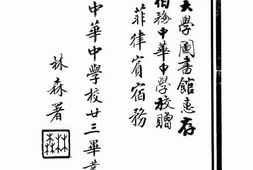 大學圖書館惠存
宿務中華中學校贈
菲律賓宿務
中華中學校廿三畢業
林森署